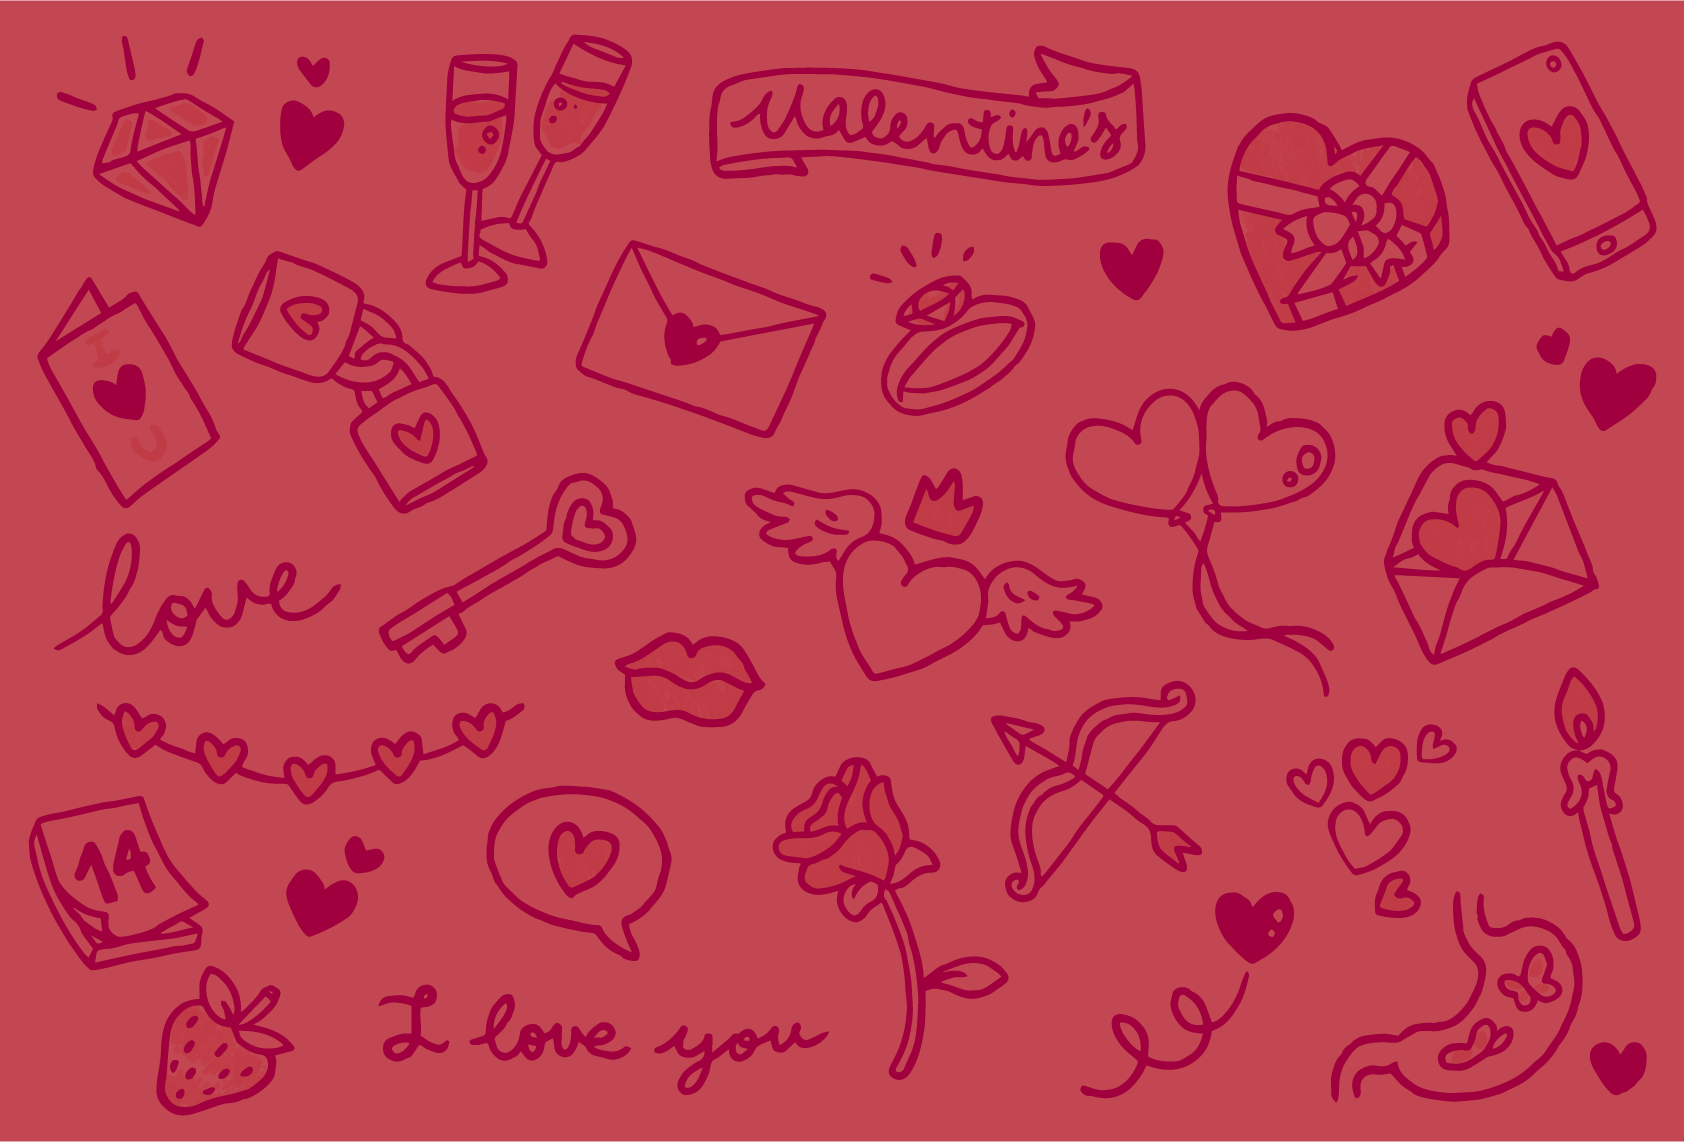 Valentine's
I
U
love
14
I love you